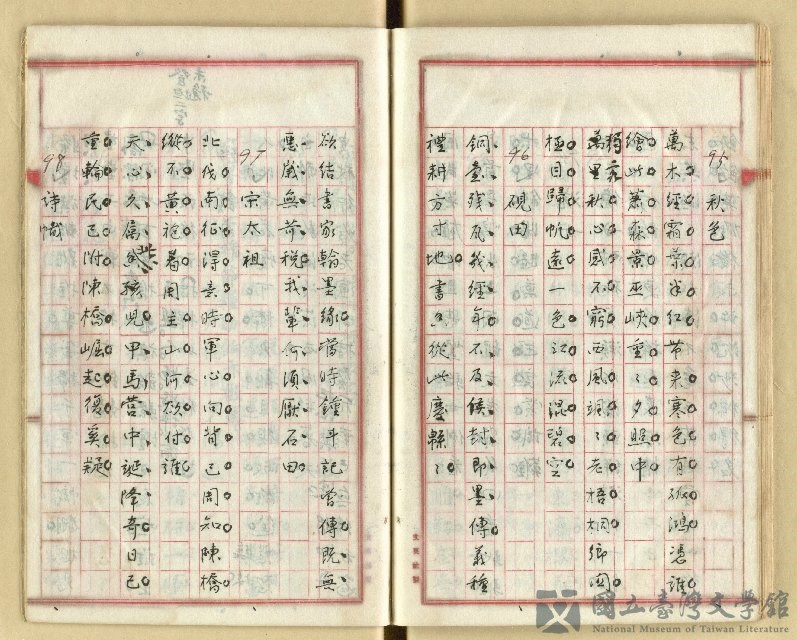 95 秋色
萬木經霜葉半紅帶來寒色有孤鴻憑誰
繪此蕭疎景巫峽重〻夕照中
萬里秋心感不窮西風颯〻老梧桐鄉園
極目歸帆遠一色江流混碧空
96 硯田
銅臺殘瓦幾經年不及侯封即墨傳義種
禮耕方寸地書香從此慶緜〻
欲結書家翰墨緣
惡歲無苛稅我輩何須厭石田
97 宋太祖
北伐南征得意時軍心向背已周知陳橋
縱不黃袍着周主山河欲付誰
天心久屬香孩兒甲馬營中誕降奇日已
重輪民已附陳橋崛起復奚疑
98 詩幟
國立臺灣文學館
National Museum of Taiwan Literature